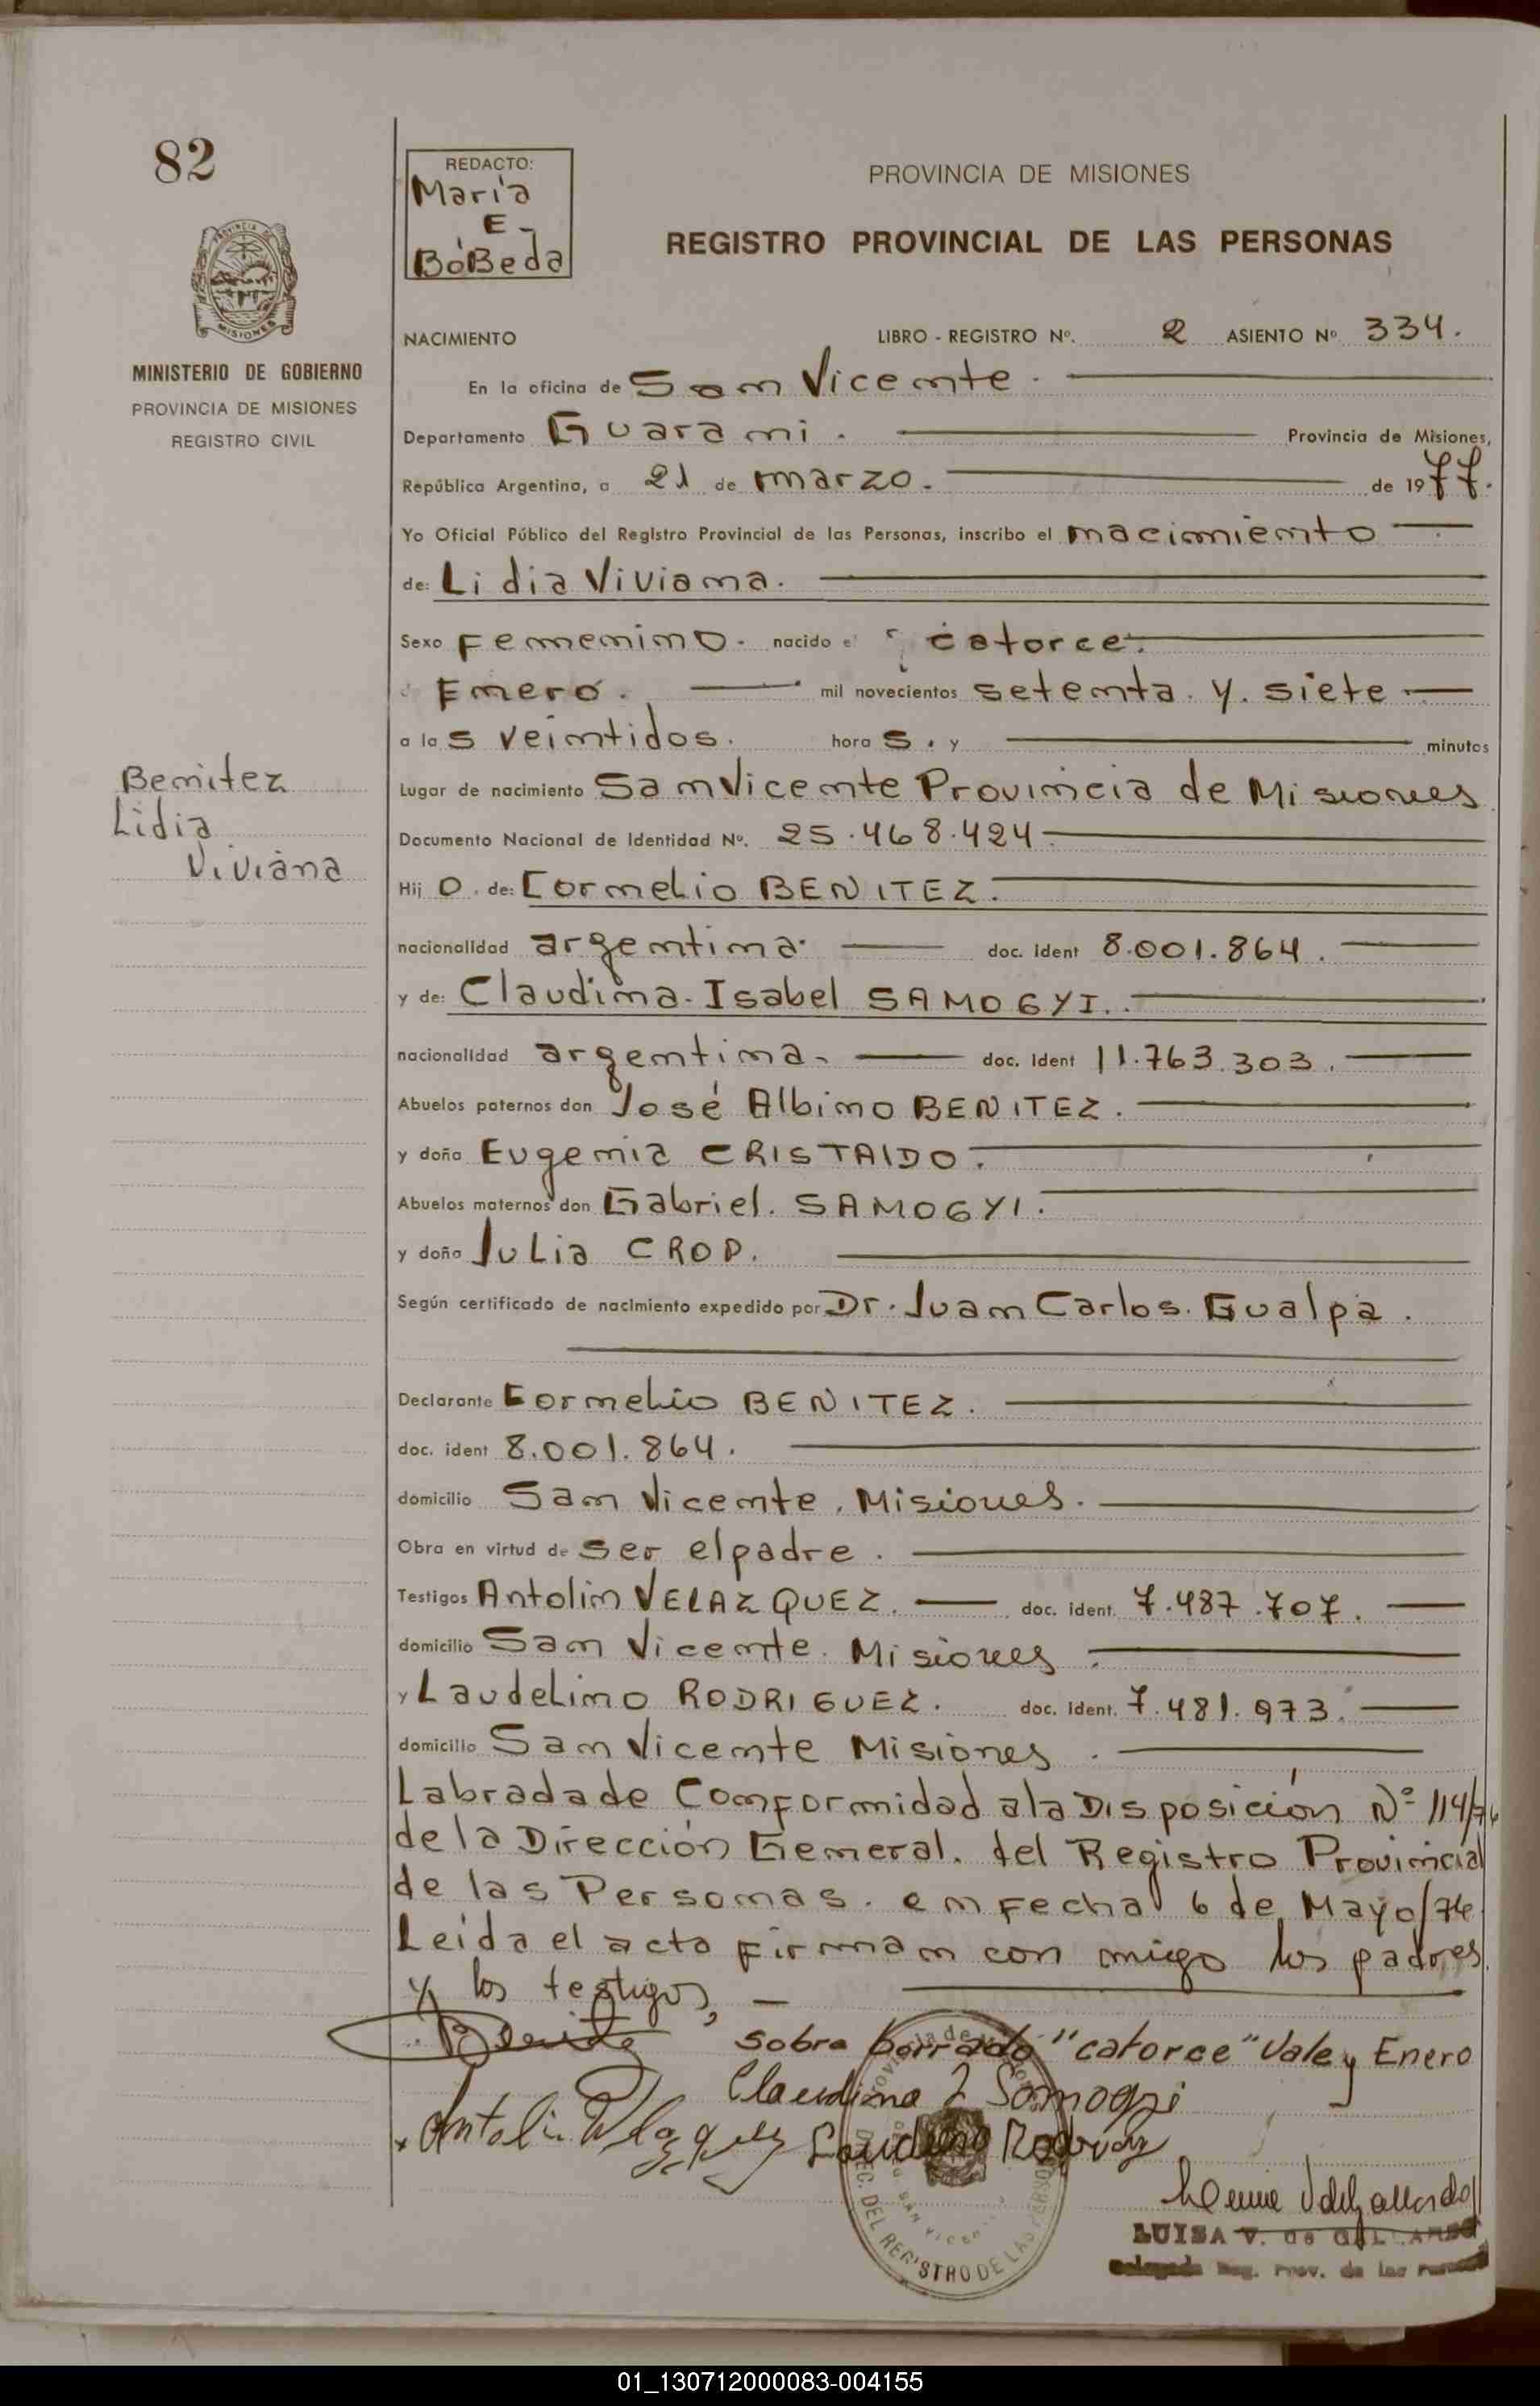 82
REDACTO:
Maria
E-
BóBeda
PROVINCIA DE MISIONES
REGISTRO PROVINCIAL DE LAS PERSONAS
MINISTERIO DE GOBIERNO
PROVINCIA DE MISIONES
REGISTRO CIVIL
NACIMIENTO LIBRO - REGISTRO Nº. 2 ASIENTO Nº 334.
En la oficina de San Vicente.
Departamento Guarani. Provincia de Misiones,
República Argentina, a 21 de marzo. de 1977.
Yo Oficial Público del Registro Provincial de las Personas, inscribo el nacimiento
de: Lidia Viviana.
Sexo Femenino. nacido el catorce.
Enero. mil novecientos setenta. y. siete
a las veintidos. horas. y minutos
Benitez
Lidia
Viviana
Lugar de nacimiento San Vicente Provincia de Misiones
Documento Nacional de Identidad Nº. 25.468.424.
Hijo. de: Cornelio BENITEZ.
nacionalidad argentina. doc. ident 8.001.864.
y de: Claudina. Isabel SAMOGYI.
nacionalidad argentina. doc. ident 11.763.303.
Abuelos paternos don José Albino BENITEZ.
y doña Eugenia CRISTALDO.
Abuelos maternos don Gabriel. SAMOGYI.
y doña Julia CROP.
Según certificado de nacimiento expedido por Dr. Juan Carlos. Gualpa.
Declarante Cornelio BENITEZ.
doc. ident 8.001.864.
domicilio San Vicente, Misiones.
Obra en virtud de ser el padre.
Testigos Antolin VELAZQUEZ. doc. ident. 7.487.707.
domicilio San Vicente. Misiones.
y Laudelino RODRIGUEZ. doc. ident. 7.481.973.
domicilio San Vicente Misiones.
Labrada de Conformidad a la Disposición Nº 114/74
de la Dirección General. del Registro Provincial
de las Personas. en Fecha 6 de Mayo/74
Leida el acta Firman con migo los padres
y los testigos,
Sobre borrado "catorce" Vale y Enero
Claudina I Somogyi
Antolin Velazquez Laudelino Rodriguez
LUISA V. de GALLARDO
Delegada Reg. Prov. de las Personas
DIREC. DEL REGISTRO DE LAS PERSONAS
SAN VICENTE
01_130712000083-004155